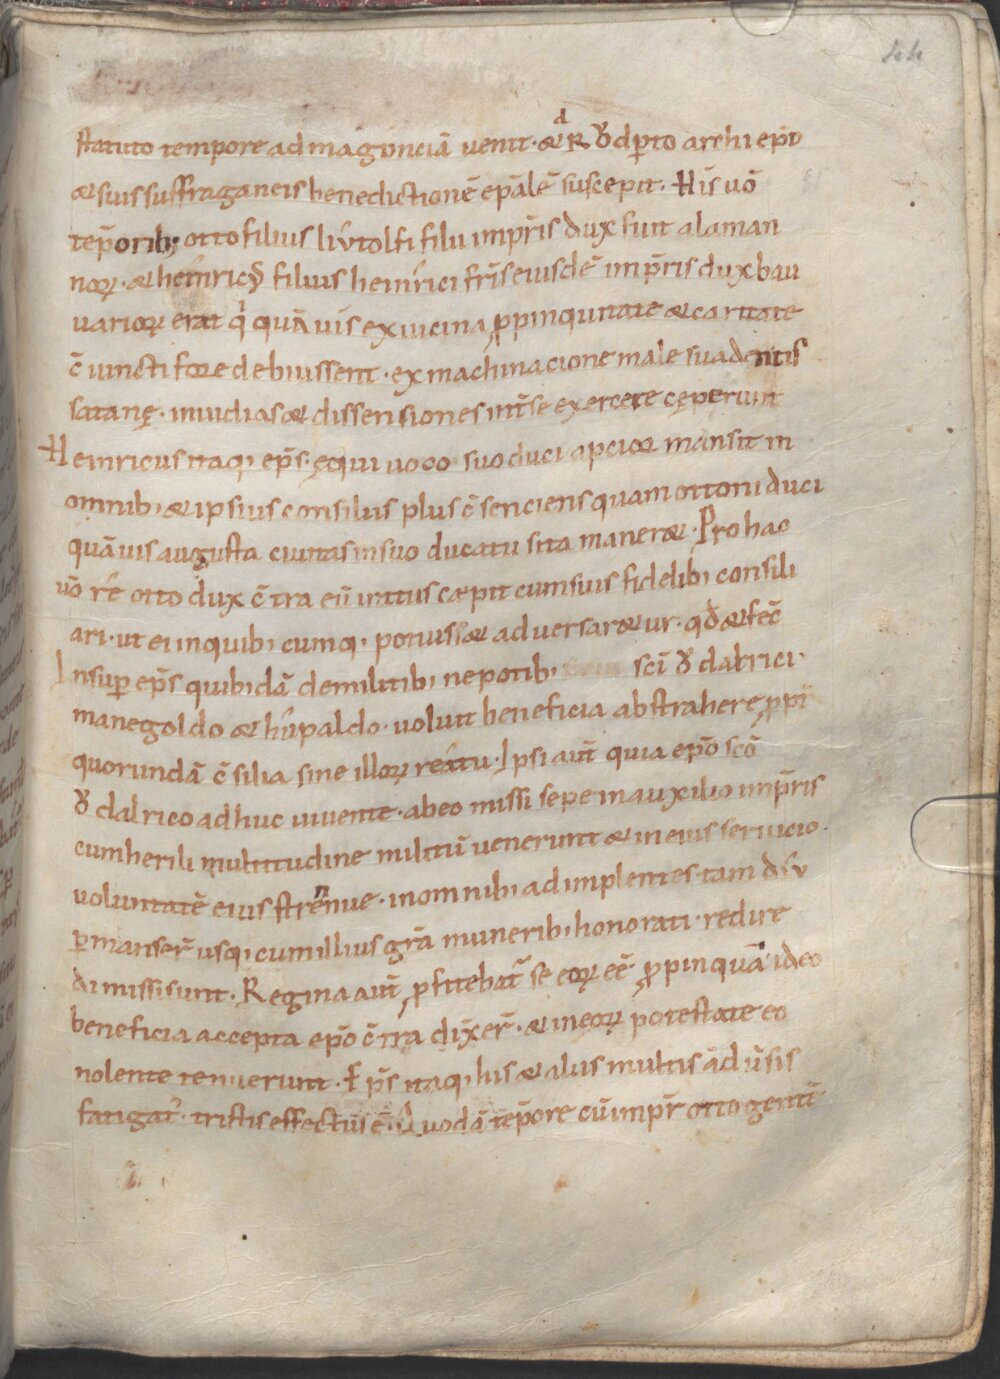 statuto tempore ad magonciā venit · & a Rŏdpto archiep̄o
& suis suffraganeis benedictionē ep̄alē suscepit. His uō
tēporib; otto filius liv́tolfi filii imp̄ris dux fuit alaman
noꝝ · & heinricꝰ filius heinrici fr̄is eiusdē imp̄ris dux bau
uarioꝝ erat qͥ quāuis ex uicina ꝓpinquitate & caritate
c̄iuncti fore debuissent · ex machinacione male suadentis
satanę · inuidias & dissensiones int̄ se exercere cęperunt
Heinricus itaq; ep̄s · ęquiuoco suo duci apcior mansit in
omnib; & ipsius consiliis plus c̄senciens quam ottoni duci
quāuis augusta ciuitas in suo ducatu sita maner& · Pro hac
uō re otto dux c̄tra eū iratus cæpit cum suis fidelib; consili
ari · ut ei in quib;cumq; potuiss& aduersar&ur · qđ & fec̄
Insuꝑ ep̄s quib;dā de militib; nepotib; sc̄i ŏdalrici ·
manegoldo & húpaldo · voluit beneficia abstrahere ꝓpt̄
quorundā c̄silia sine illoꝝ reatu · Ipsi aut̄ quia ep̄o sc̄o
ŏdalrico adhuc uiuente · ab eo missi sepe in auxilio imp̄ris
cum herili multitudine militū venerunt & in eius seruicio ·
voluntatē eius strennue · in omnib; adimplentes · tam div
ꝑmanser̄ usq; cum illius gr̄a munerib; honorati · redire
dimissi sunt · Regina aut̄ ꝓfitebat̄ se eoꝝ eē ꝓpinquā · ideo
beneficia accepta ep̄o c̄tra dix̄er̄ · & in eoꝝ potestate eo
nolente tenuerunt · Ep̄s itaq; his & aliis multis adūsis
fatigat᷒ · tristis effectus ē · Quodā tēpore cū imp̄r otto gentū